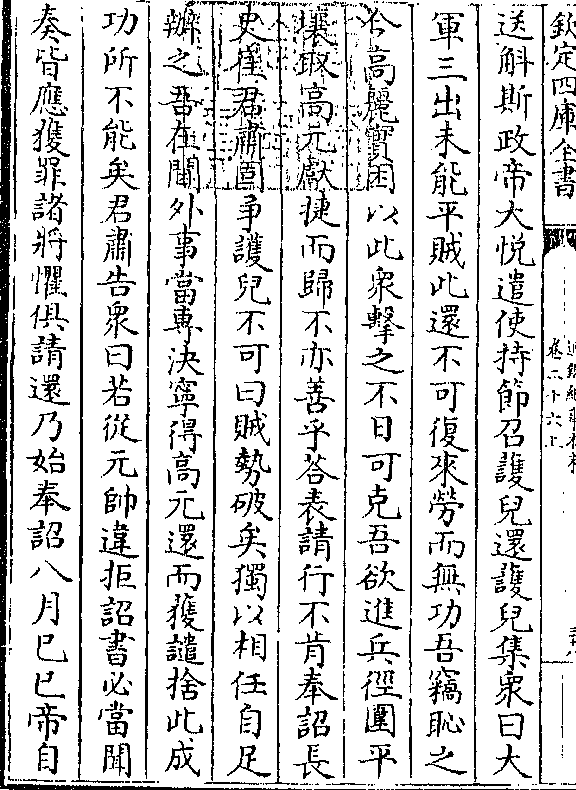 欽定四庫全書
通鑑紀事本末
卷二十六上
送斛斯政帝大悦遣使持節召護兒還護兒集衆曰大
軍三出未能平賊此還不可復來勞而無功吾竊恥之
今高麗實困以此衆擊之不日可克吾欲進兵徑圍平
壤取高元獻捷而歸不亦善乎荅表請行不肯奉詔長
史崔君肅固爭護兒不可曰賊勢破矣獨以相任自足
辦之吾在閫外事當專決寧得高元還而獲譴捨此成
功所不能矣君肅告衆曰若從元帥違拒詔書必當聞
奏皆應獲罪諸將懼俱請還乃始奉詔八月己巳帝自